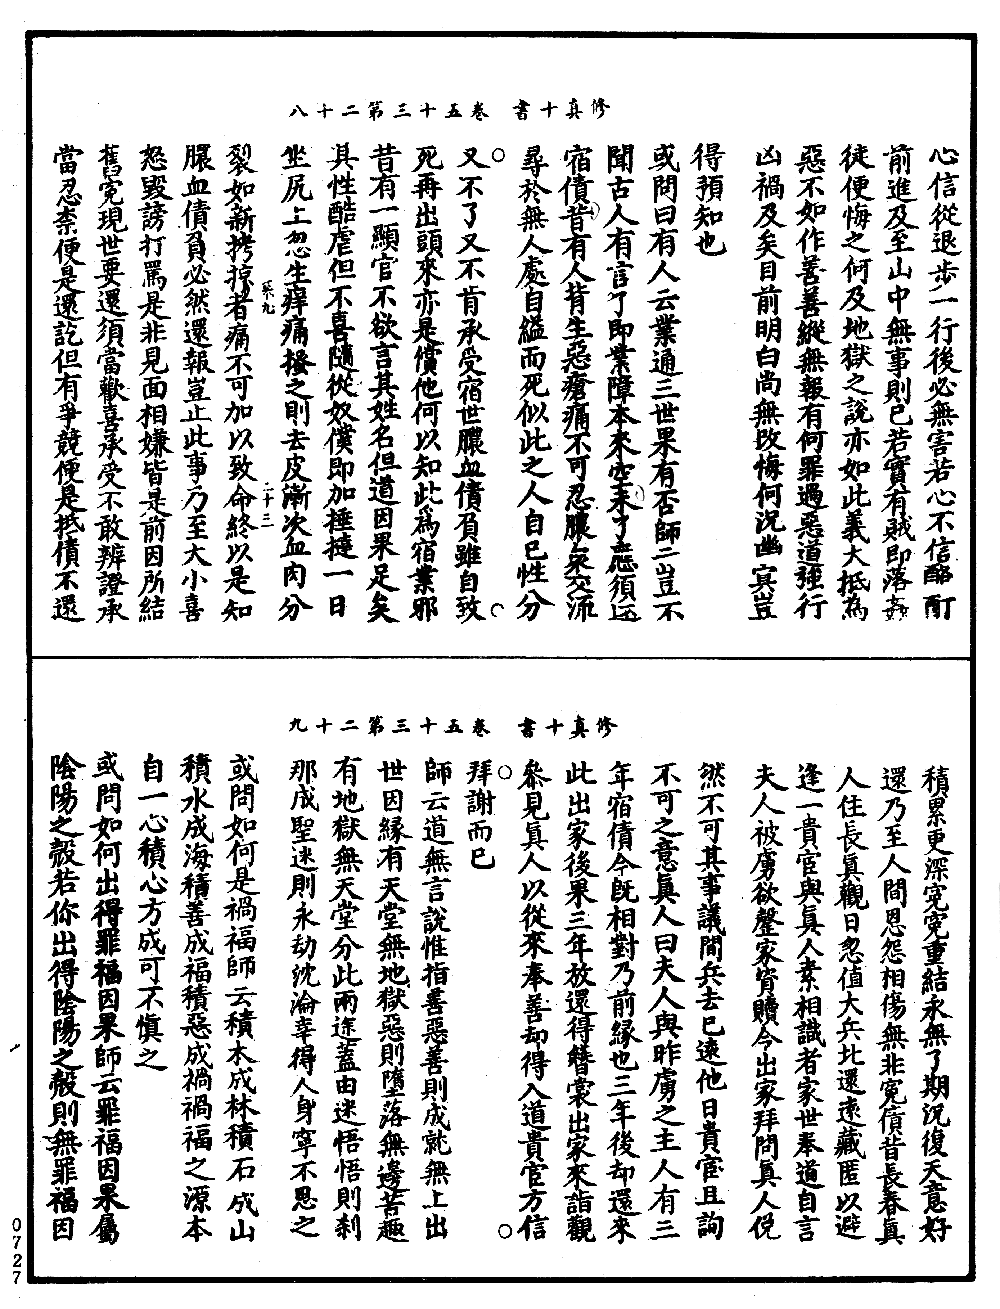 修真十書　卷五十三第二十八
心信從退步一行後必無害若心不信酩酊
前進及至山中無事則已若實有賊即落姦
徒便悔之何及地獄之說亦如此義大抵為
惡不如作善善縱無報有何罪過惡道強行
凶禍及矣目前明白尚無改悔何況幽冥豈
得預知也
或問曰有人云業通三世果有否師二豈不
聞古人有言了即業障本來空未了應須还
宿債昔有人背生惡瘡痛不可忍膿臭交流
尋於無人處自縊而死似此之人自己性分
○又不了又不肯承受宿世膿血債負雖自致○
死再出頭來亦是償他何以知此爲宿業邪
昔有一顯官不欲言其姓名但道因果足矣
其性酷虐但不喜隨從奴僕即加捶撻一日
坐尻上忽生痒痛搔之則去皮漸次血肉分
裂如斬拷掠者痛不可加以致命終以是知
二十三
膿血債負必然還報豈止此事乃至大小喜
怒毀謗打罵是非見面相嫌皆是前因所結
舊冤現世要還須當歡喜承受不敢辨證承
當忍柰便是還訖但有爭競便是抵債不還
修真十書　卷五十三第二十九
積累更深冤冤重結永無了期況復天意好
還乃至人間恩怨相傷無非冤債昔長春真
人住長真觀日忽值大兵北還遠藏匿以避
逢一貴官與真人素相識者家世奉道自言
夫人被虜欲罄家貲贖今出家拜問真人俛
然不可其事議間兵去已遠他日貴官且詢
不可之意真人曰夫人與昨虜之主人有三
年宿債今旣相對乃前緣也三年後却還來
此出家後果三年放還得簪裳出家來詣觀
參見真人以從來奉善却得入道貴官方信
○拜謝而已○
師云道無言說惟指善惡善則成就無上出
世因緣有天堂無地獄惡則墮落無邊苦趣
有地獄無天堂分此兩途蓋由迷悟悟則刹
那成聖迷則永劫沈淪幸得人身寧不思之
或問如何是禍福師云積木成林積石成山
積水成海積善成福積惡成禍禍福之源本
自一心積心方成可不慎之
或問如何出得罪福因果師云罪福因果屬
陰陽之殼若你出得陰陽之殼則無罪福因
0727